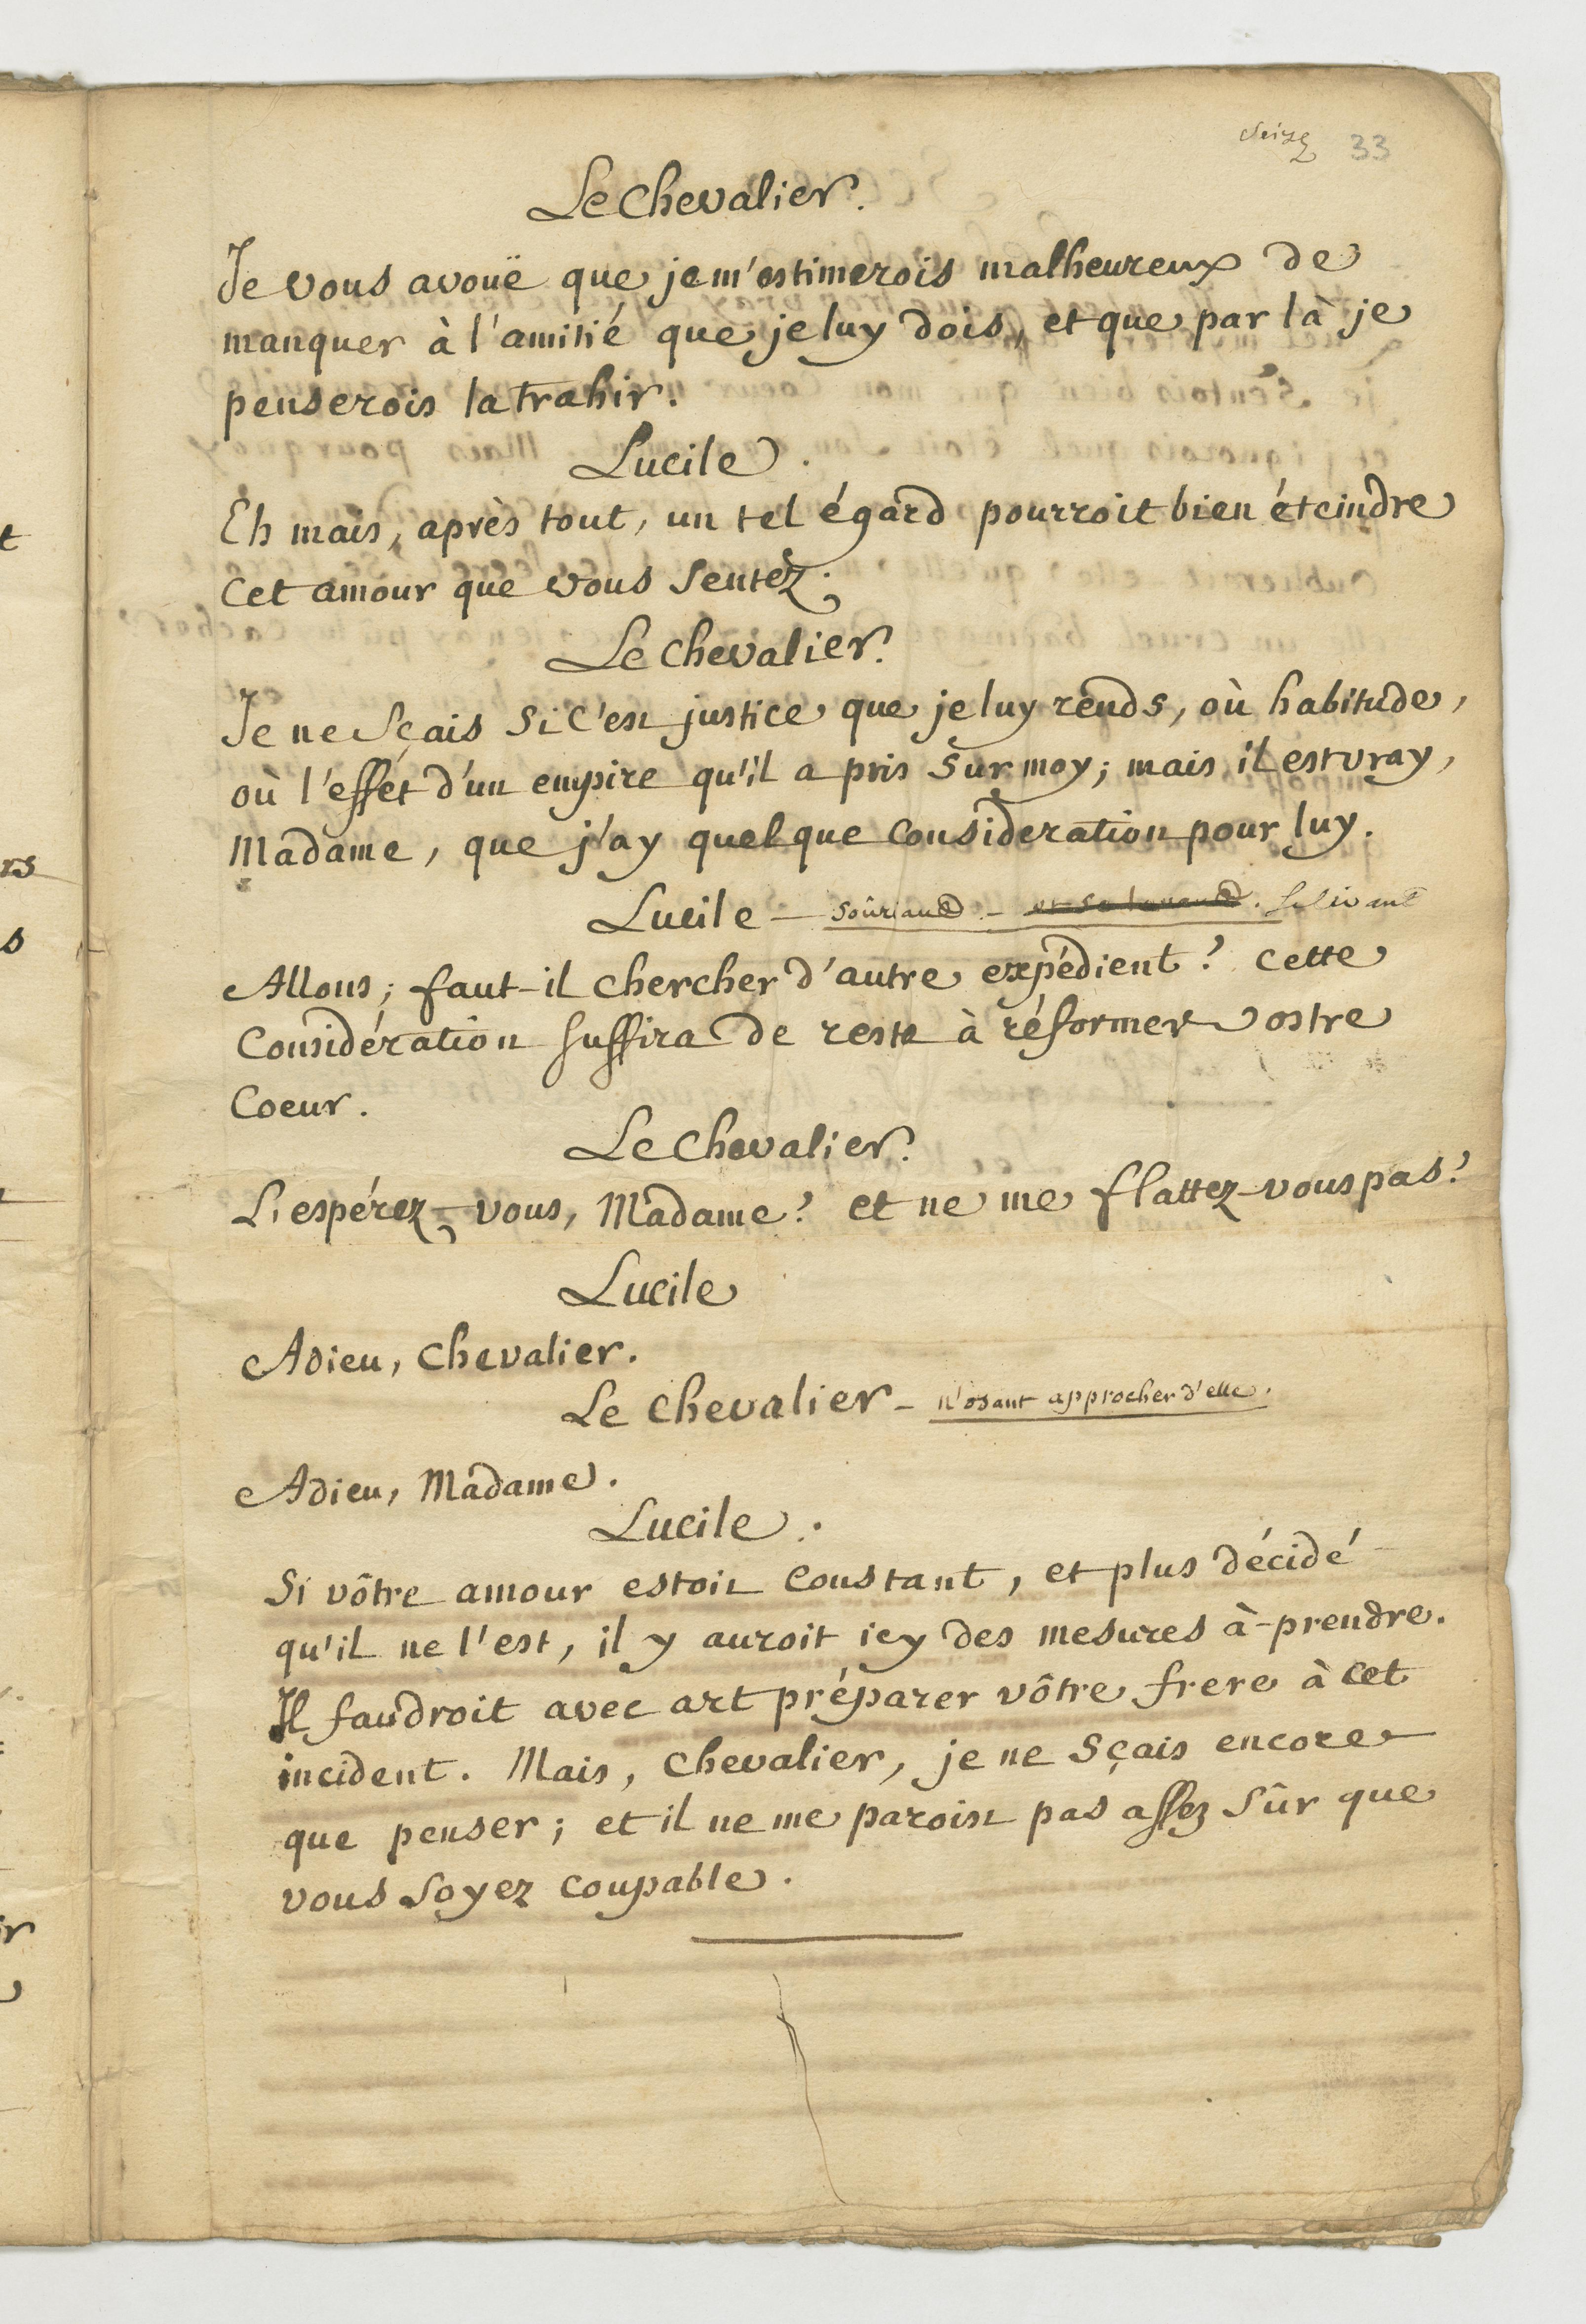 seize 33
Le Chevalier.
Je vous avouë que je m'estimerois malheureux de
manquer à l'amitié que je luy dois, et que par là je
penserois la trahir.
Lucile.
Eh mais, après tout, un tel égard pourroit bien éteindre
cet amour que vous sentez.
Le Chevalier.
Je ne sçais si c'est justice que je luy rends, où habitude,
où l'effét d'un empire qu'il a pris sur moy; mais il est vray,
Madame, que j'ay quelque consideration pour luy.
Lucile – soûriand – et se levand. se levant
Allons; faut-il chercher d'autre expédient? cette
considération suffira de reste à réformer vostre
coeur.
Le Chevalier.
L'espérez-vous, Madame? et ne me flattez-vous pas?
Lucile
Adieu, chevalier.
Le Chevalier – n'osant approcher d'elle.
Adieu, Madame.
Lucile.
Si vôtre amour estoit constant, et plus décidé
qu'il ne l'est, il y auroit icy des mesures à-prendre.
Il faudroit avec art préparer vôtre frere à cet
incident. Mais, chevalier, je ne sçais encore
que penser; et il ne me paroist pas assez sûr que
vous soyez coupable.